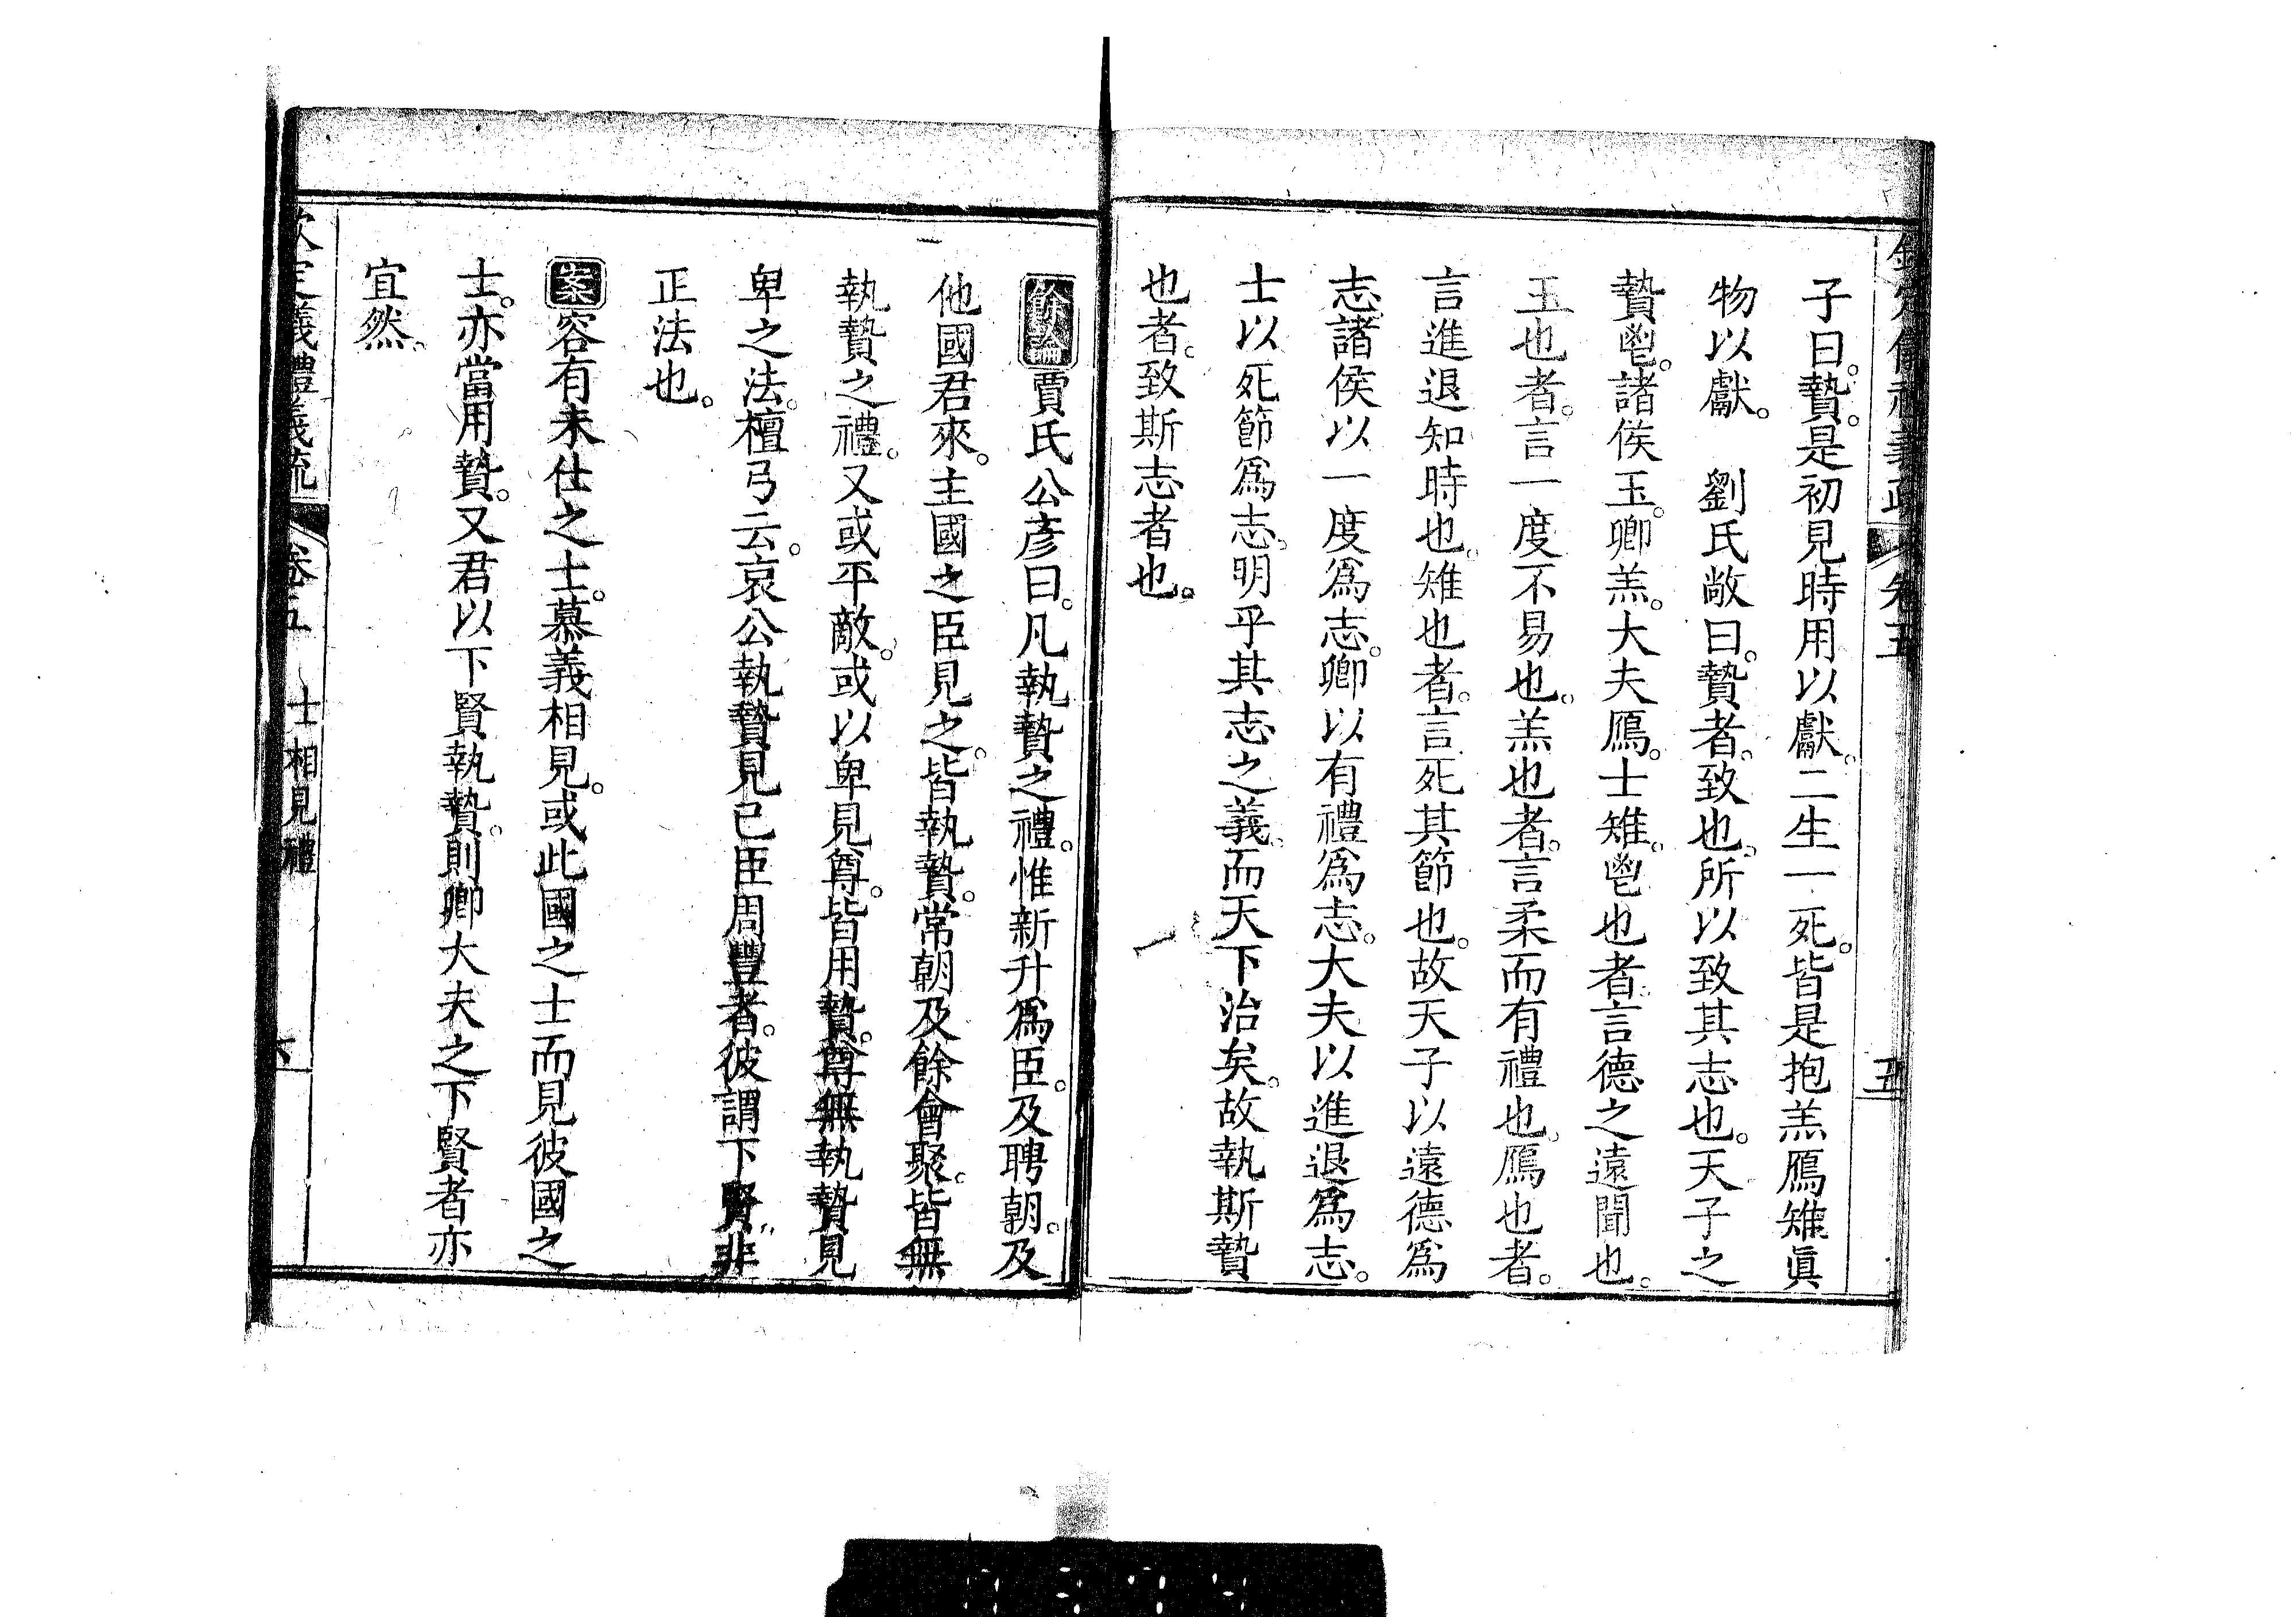 欽定儀禮義疏 卷五 五
子曰。贄。是初見時用以獻。二生一死。皆是抱羔鴈雉眞
物以獻。　劉氏敞曰。贄者。致也。所以致其志也。天子之
贄鬯。諸侯玉。卿羔。大夫鴈。士雉。鬯也者。言德之遠聞也。
玉也者。言一度不易也。羔也者。言柔而有禮也。鴈也者。
言進退知時也。雉也者。言死其節也。故天子以遠德爲
志。諸侯以一度爲志。卿以有禮爲志。大夫以進退爲志。
士以死節爲志。明乎其志之義。而天下治矣。故執斯贄
也者。致斯志者也。
餘論賈氏公彥曰。凡執贄之禮。惟新升爲臣。及聘朝。及
他國君來。主國之臣見之。皆執贄。常朝及餘會聚。皆無
執贄之禮。又或平敵。或以卑見尊。皆用贄。尊無執贄見
卑之法。檀弓云。哀公執贄見己臣周豐者。彼謂下賢。非
正法也。
案容有未仕之士。慕義相見。或此國之士而見彼國之
士。亦當用贄。又君以下賢執贄。則卿大夫之下賢者亦
宜然。
欽定義禮義疏 卷五 士相見禮 六